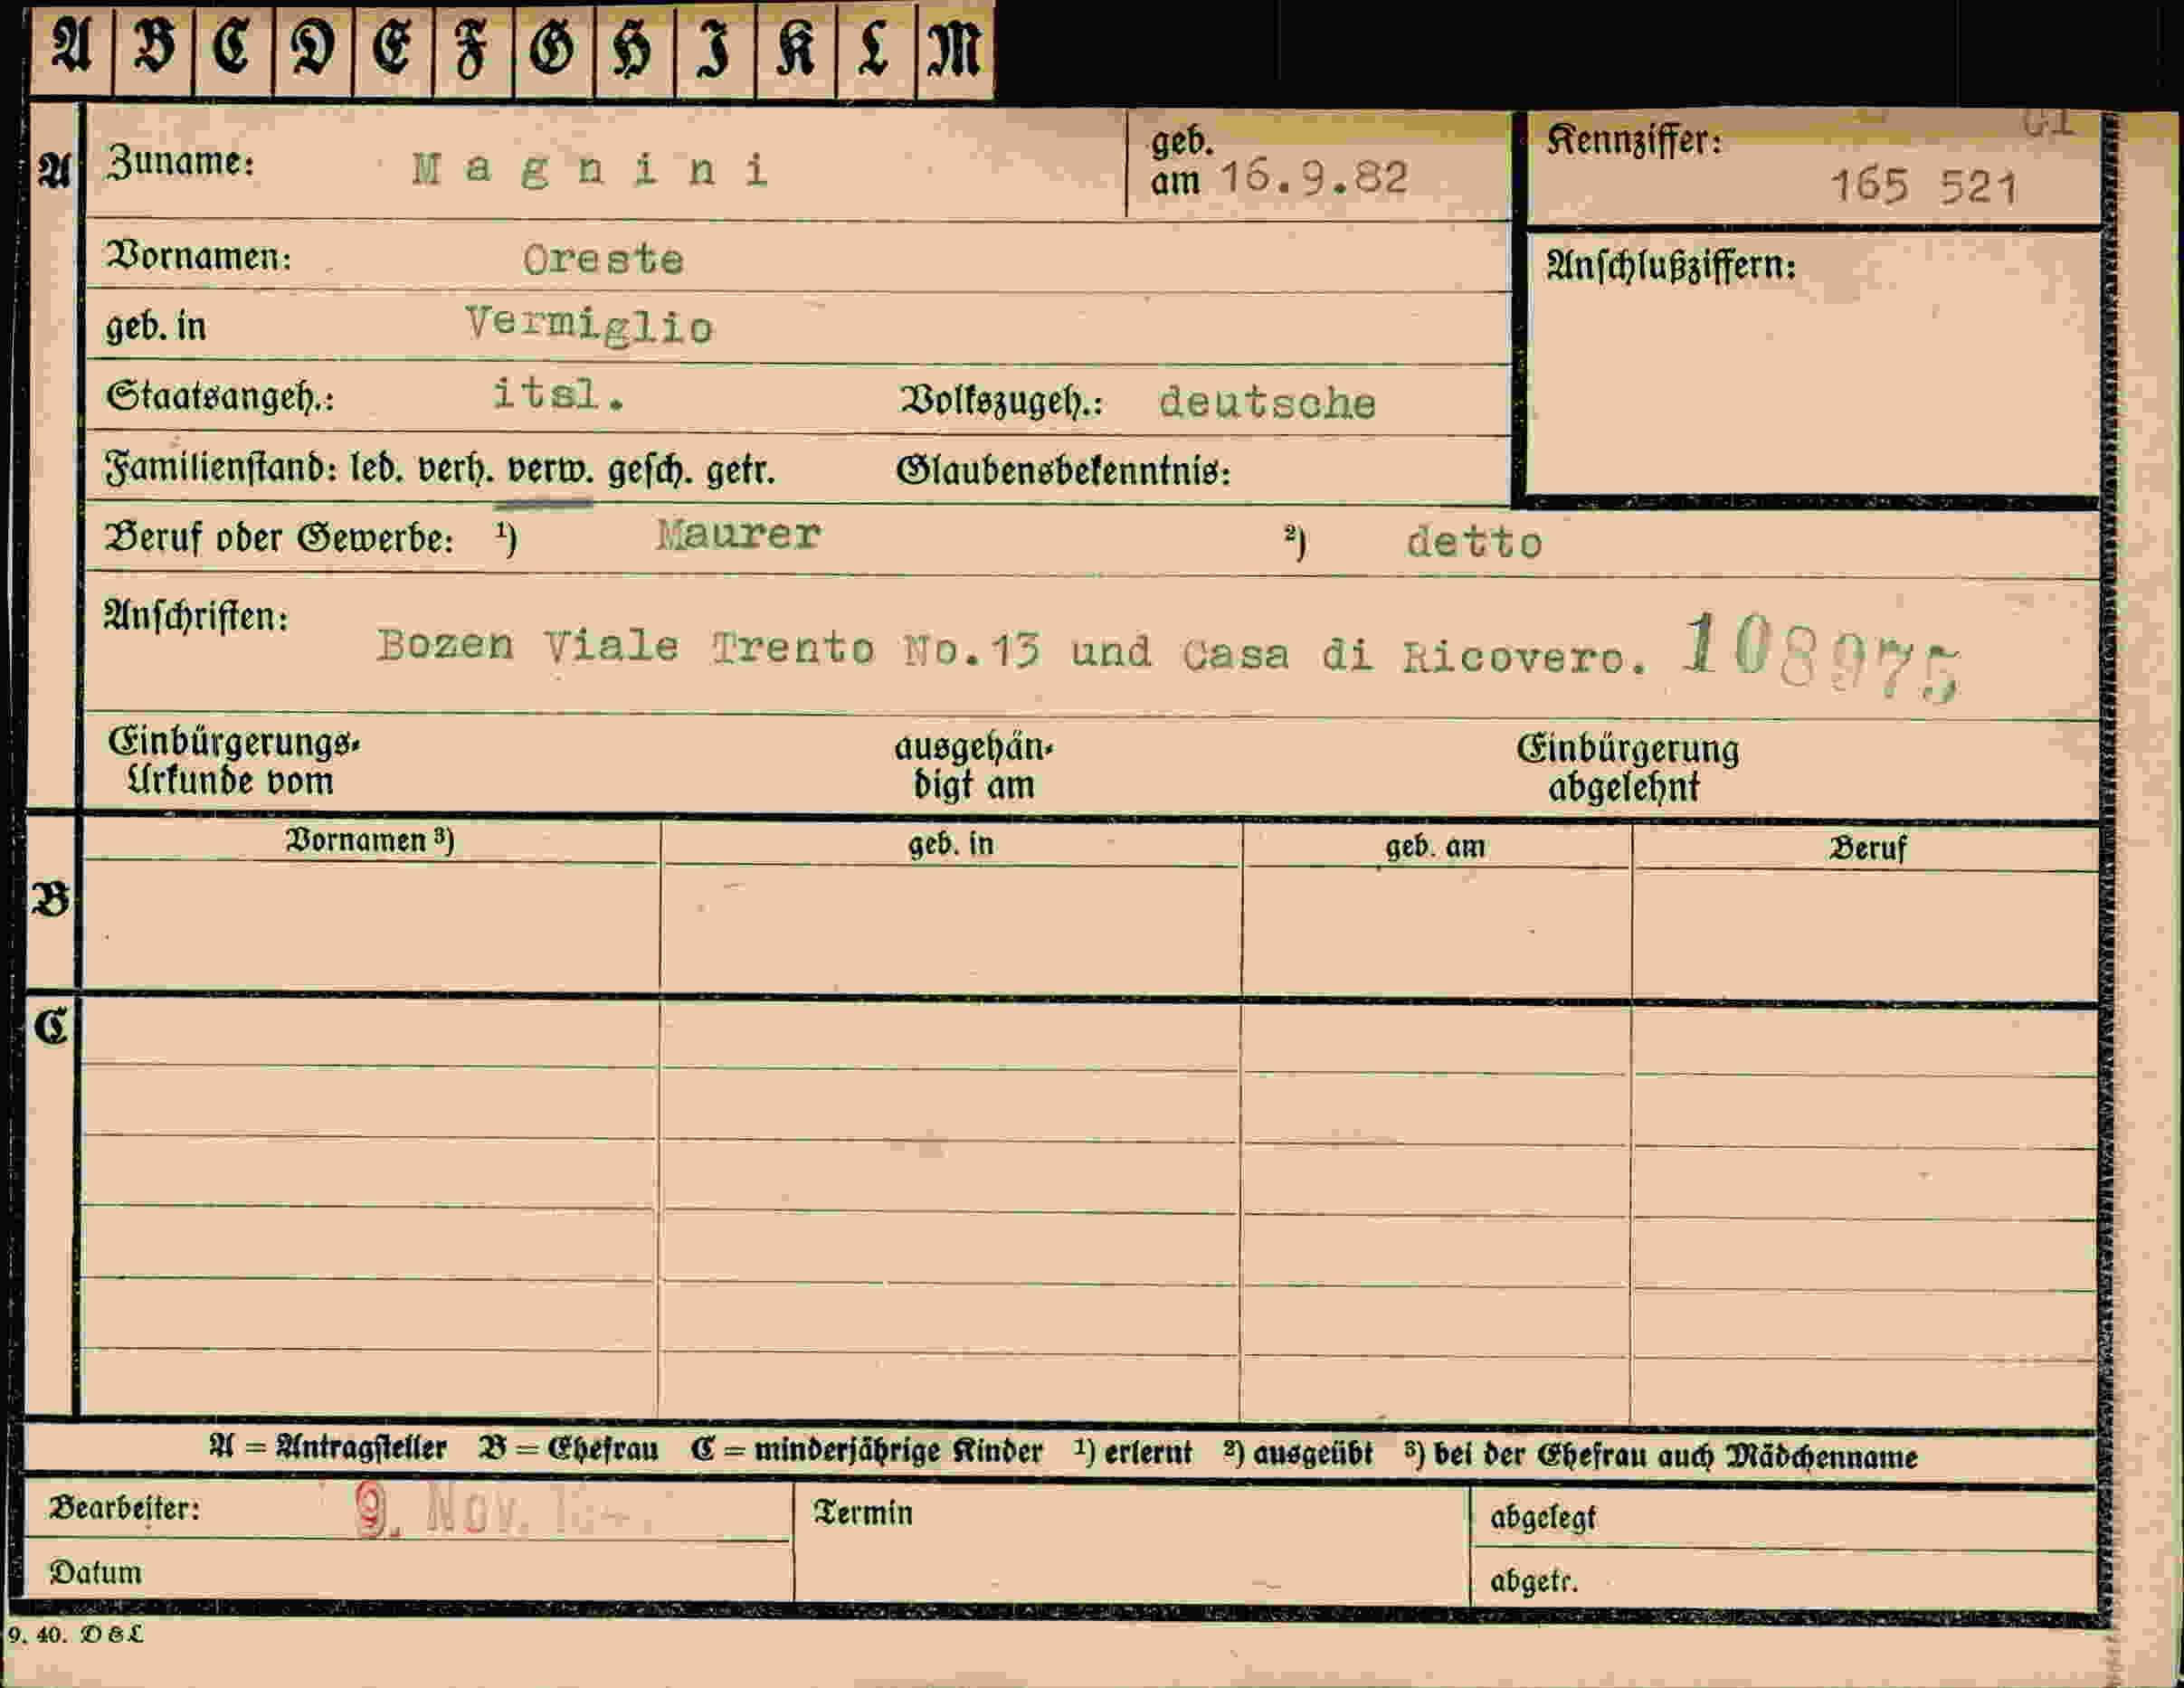 A B C D E F G H I K L M
A Zuname: Magnini geb. am 16.9.82 Kennziffer: 165 521
Vornamen: Oreste Anschlußziffern:
geb. in Vermiglio
Staatsangeh.: itsl. Volkszugeh.: deutsche
Familienstand: led. verh. verw. gesch. getr. Glaubensbekenntnis:
Beruf oder Gewerbe: 1) Maurer 2) detto
Anschriften: Bozen Viale Trento No.13 und Casa di Ricovero. 108975
Einbürgerungs- ausgehän- Einbürgerung
Urkunde vom digt am abgelehnt
Vornamen 3) geb. in geb. am Beruf
B
C
A = Antragsteller B = Ehefrau C = minderjährige Kinder 1) erlernt 2) ausgeübt 3) bei der Ehefrau auch Mädchenname
Bearbeiter: 9. Nov. Termin abgelegt
Datum abgetr.
9. 40. D & L